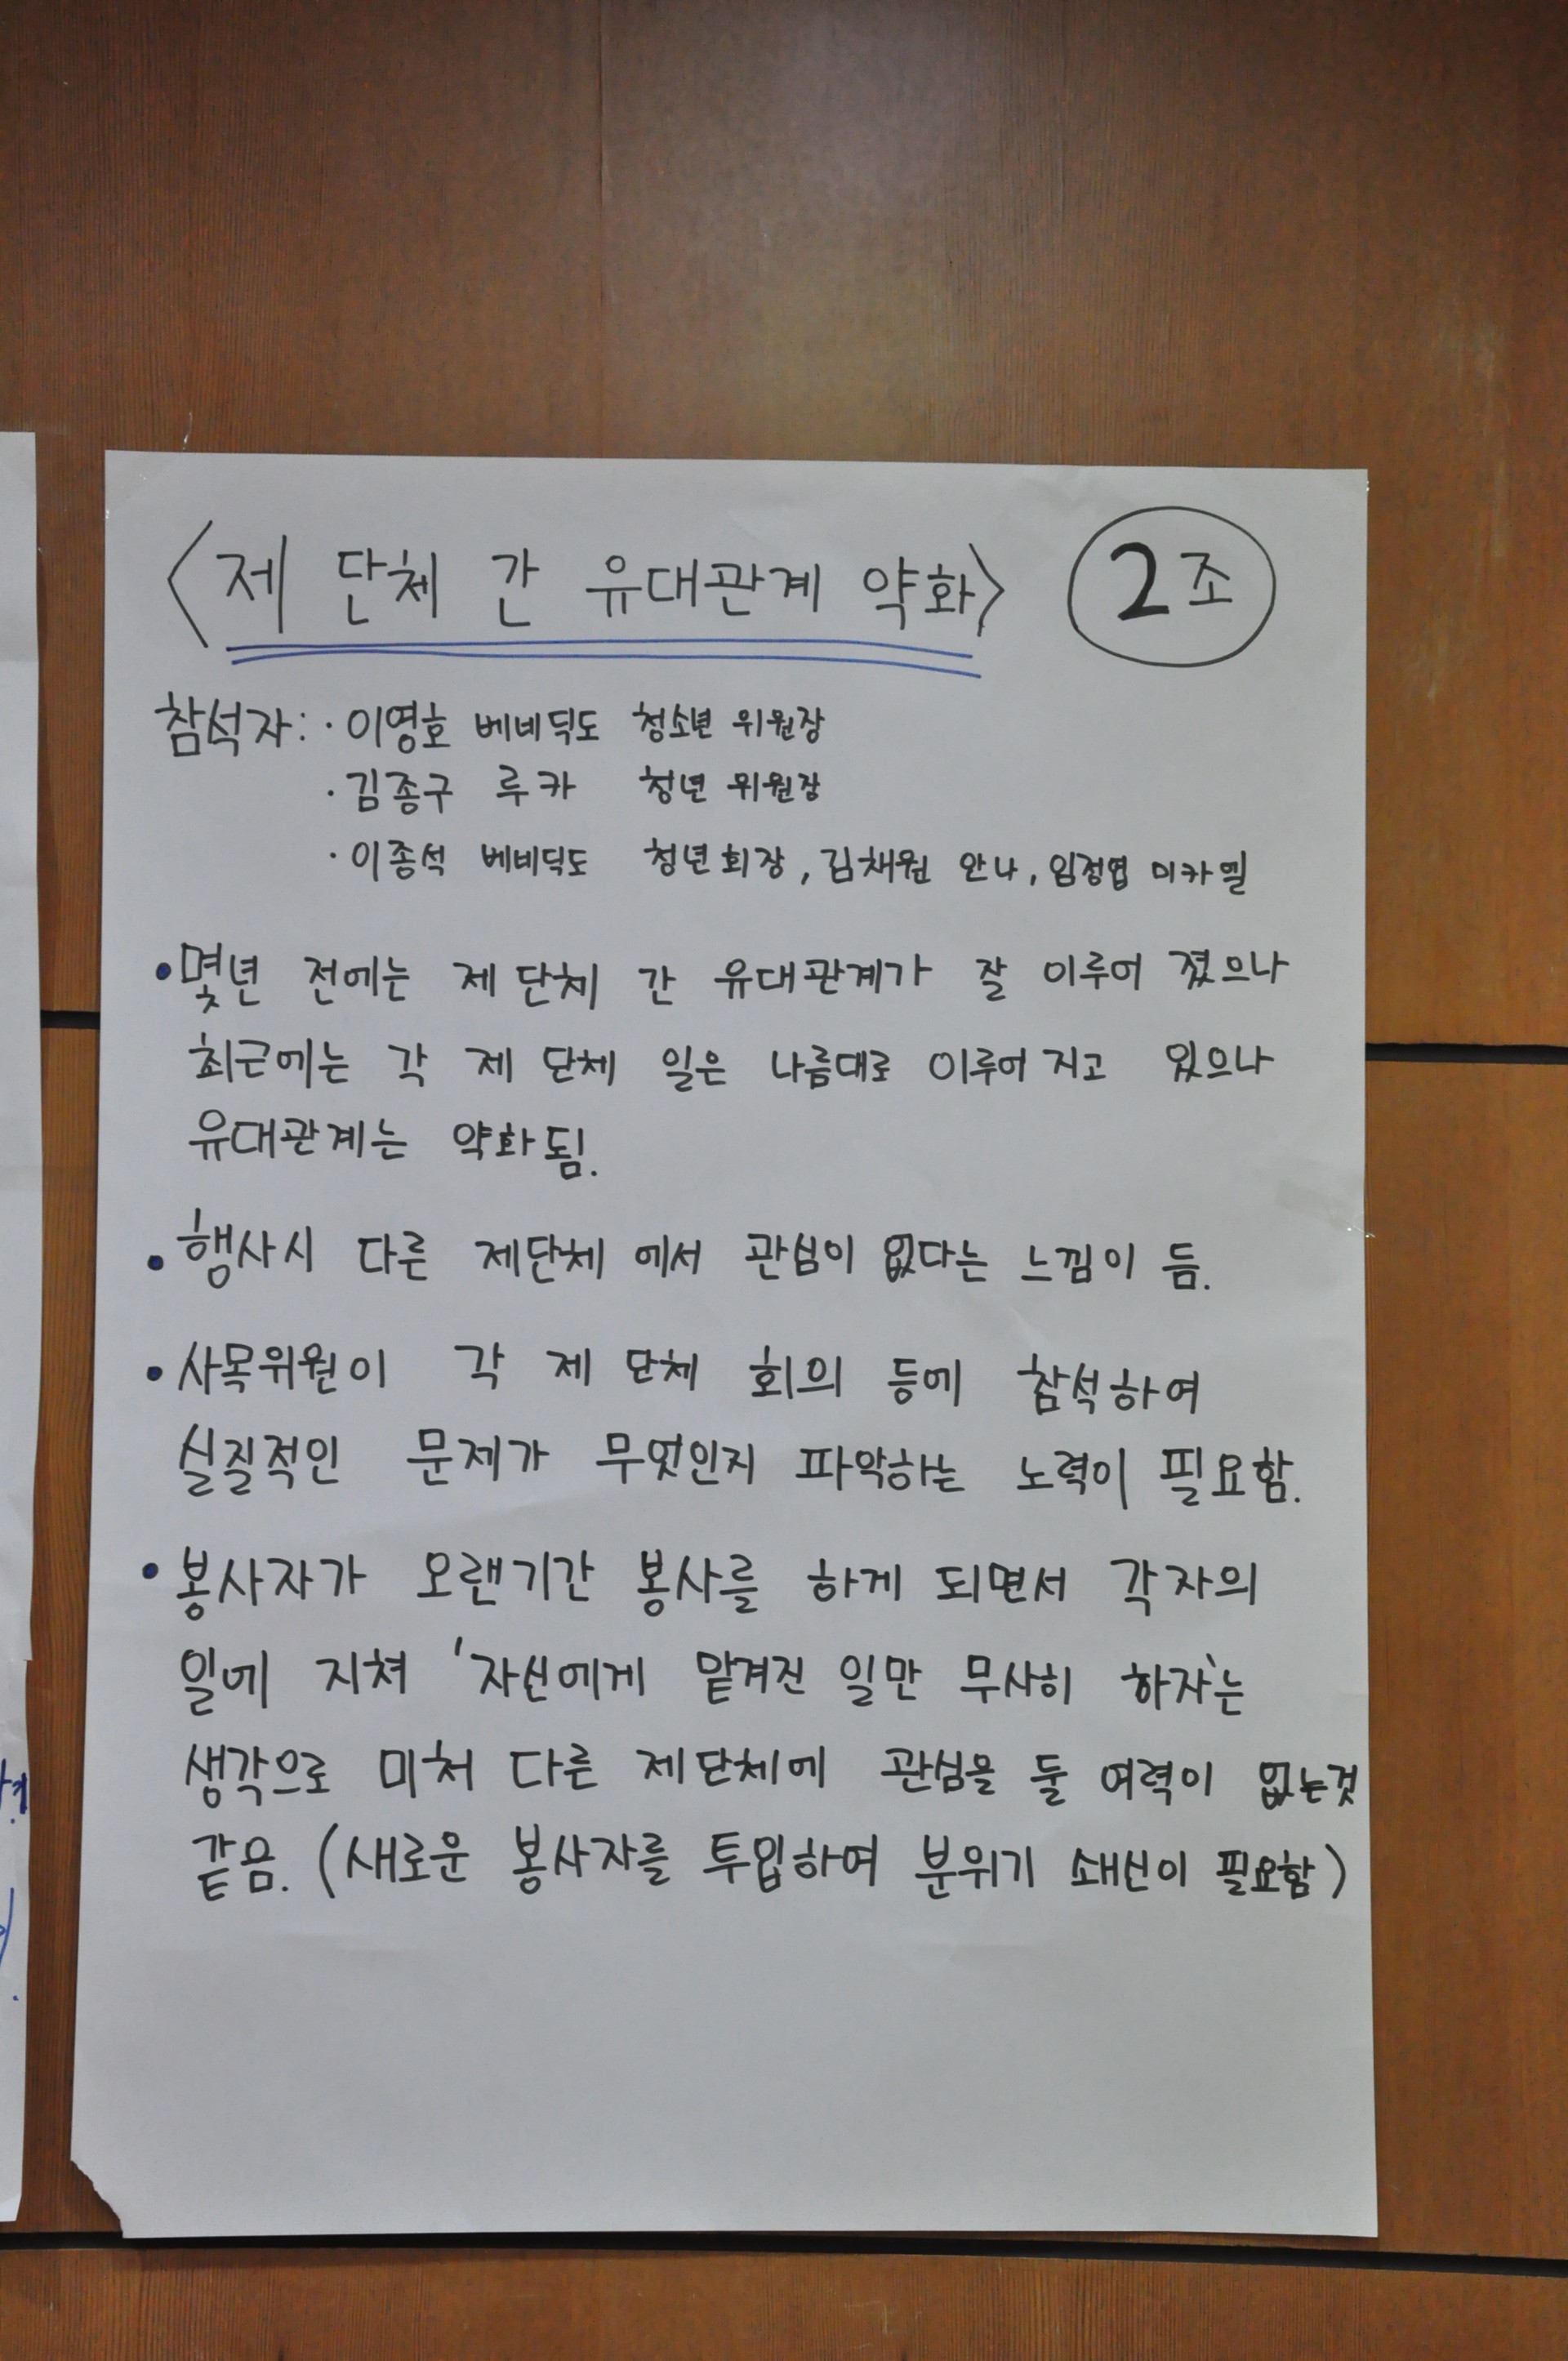 <제 단체 간 유대관계 약화> 2조
참석자: · 이영호 베네딕도 청소년 위원장
· 김종구 루카 청년 위원장
· 이종석 베네딕도 청년회장, 김채원 안나, 임정엽 미카엘
• 몇년 전에는 제 단체 간 유대관계가 잘 이루어 졌으나
최근에는 각 제 단체 일은 나름대로 이루어 지고 있으나
유대관계는 약화됨.
• 행사시 다른 제단체 에서 관심이 없다는 느낌이 듬.
• 사목위원이 각 제 단체 회의 등에 참석하여
실질적인 문제가 무엇인지 파악하는 노력이 필요함.
• 봉사자가 오랜기간 봉사를 하게 되면서 각자의
일에 지쳐 '자신에게 맡겨진 일만 무사히 하자'는
생각으로 미처 다른 제단체에 관심을 둘 여력이 없는것
같음. (새로운 봉사자를 투입하여 분위기 쇄신이 필요함)